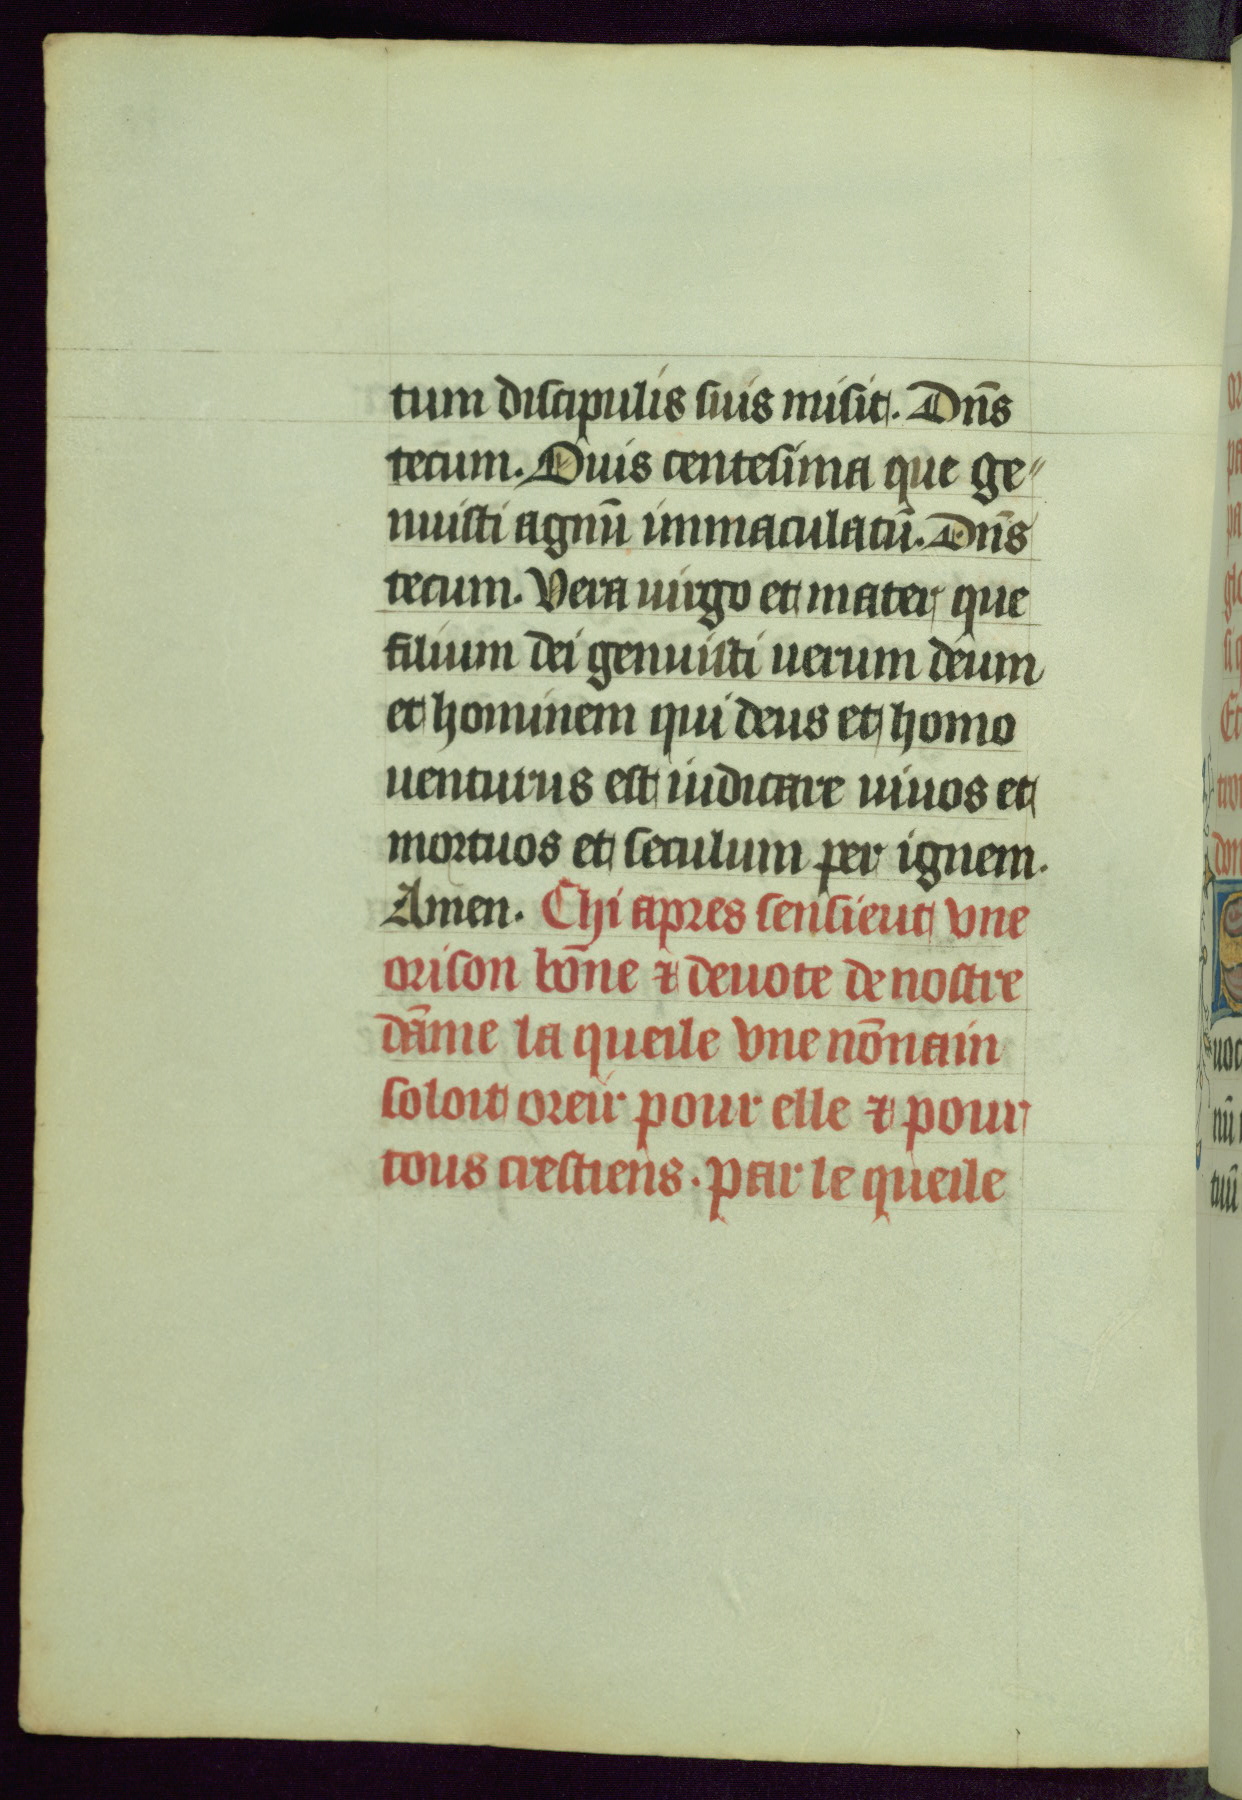 tum discipulis suis misit. Dn̄s
tecum. Ouis centesima que ge〃
nuisti agnū immaculatū. Dn̄s
tecum. Vera uirgo et mater que
filium dei genuisti uerum deum
et hominem qui deus et homo
uenturus est iudicare uiuos et
mortuos et seculum per ignem.
Amen. Chi apres sensieut vne
orison bōne ⁊ deuote de nostre
dāme la queile vne nōnain
soloit oreir pour elle ⁊ pour
tous crestiens. par le queile